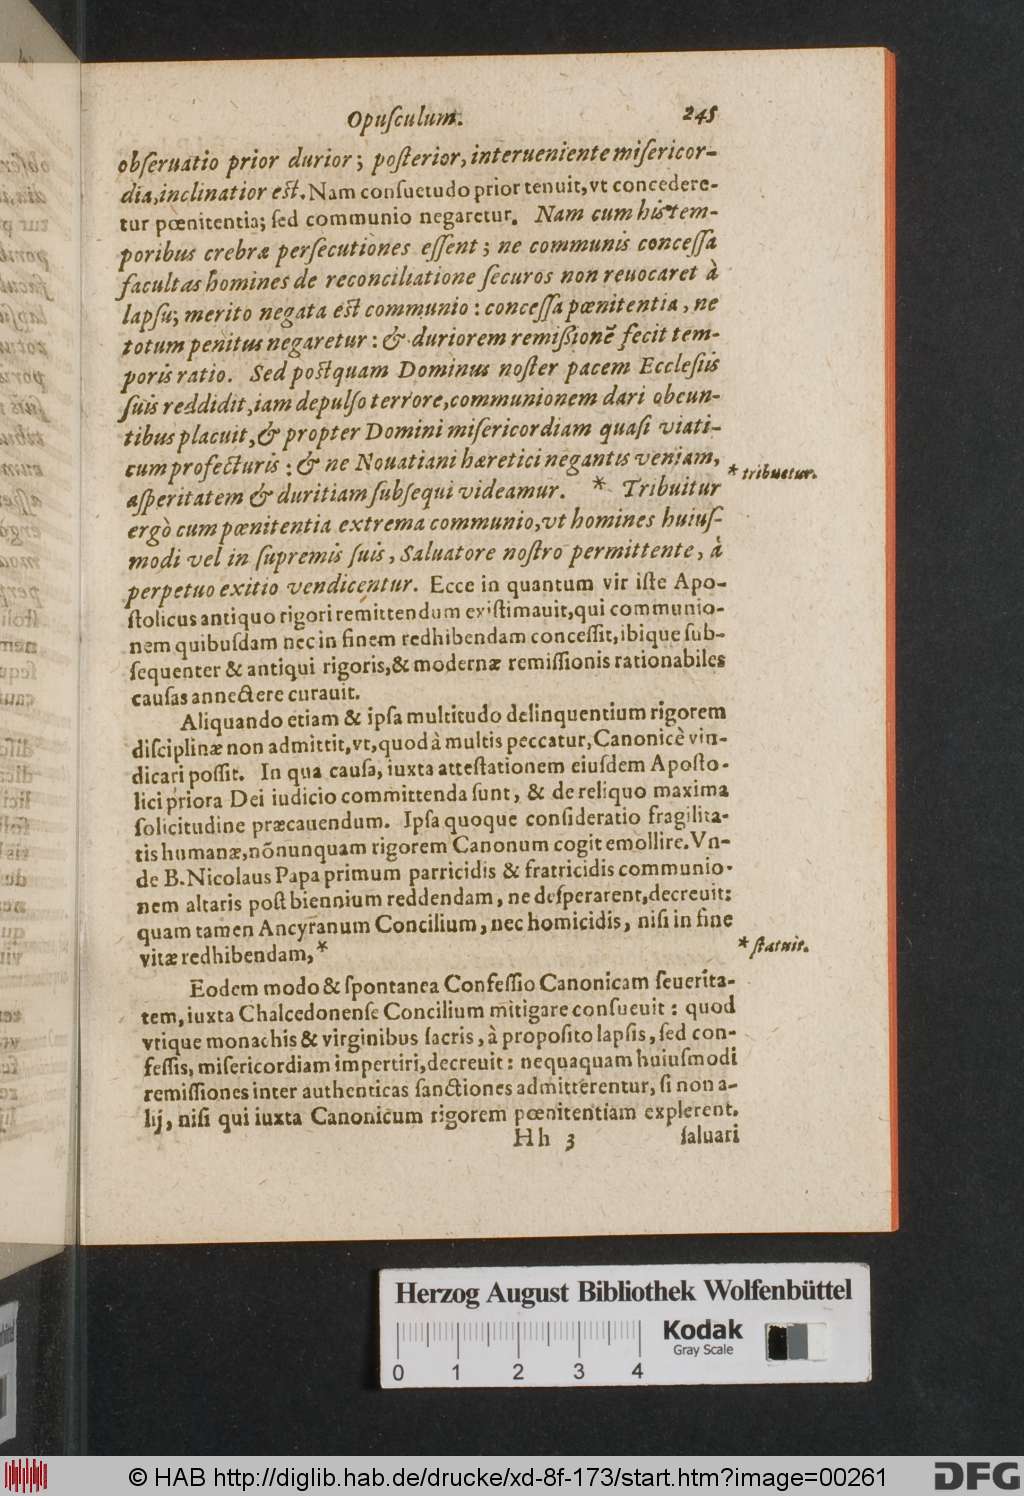 Opuſculum. 245
obſeruatio prior durior; poſterior, interueniente miſericor-
dia, inclinatior eſt. Nam conſuetudo prior tenuit, vt concedere-
tur pœnitentia; ſed communio negaretur. Nam cum his tem-
poribus crebræ perſecutiones eſſent; ne communis conceſſa
facultas homines de reconciliatione ſecuros non reuocaret à
lapſu; merito negata eſt communio: conceſſa pœnitentia, ne
totum penitus negaretur: & duriorem remißionē fecit tem-
poris ratio. Sed poſtquam Dominus noſter pacem Eccleſiis
ſuis reddidit, iam depulſo terrore, communionem dari obeun-
tibus placuit, & propter Domini miſericordiam quaſi viati-
cum profecturis: & ne Nouatiani hæretici negantis veniam,
aſperitatem & duritiam ſubſequi videamur. * Tribuitur
* tribuetur.
ergò cum pœnitentia extrema communio, vt homines huiuſ-
modi vel in ſupremis ſuis, Saluatore noſtro permittente, à
perpetuo exitio vendicentur. Ecce in quantum vir iſte Apo-
ſtolicus antiquo rigori remittendum exiſtimauit, qui communio-
nem quibuſdam nec in finem redhibendam conceſſit, ibique ſub-
ſequenter & antiqui rigoris, & modernæ remiſſionis rationabiles
cauſas annectere curauit.
Aliquando etiam & ipſa multitudo delinquentium rigorem
diſciplinæ non admittit, vt, quod à multis peccatur, Canonicè vin-
dicari poſſit. In qua cauſa, iuxta atteſtationem eiuſdem Apoſto-
lici priora Dei iudicio committenda ſunt, & de reliquo maxima
ſolicitudine præcauendum. Ipſa quoque conſideratio fragilita-
tis humanæ, nōnunquam rigorem Canonum cogit emollire. Vn-
de B. Nicolaus Papa primum parricidis & fratricidis communio-
nem altaris poſt biennium reddendam, ne deſperarent, decreuit:
quam tamen Ancyranum Concilium, nec homicidis, niſi in fine
vitæ redhibendam, *
* ſtatuit.
Eodem modo & ſpontanea Confeſſio Canonicam ſeuerita-
tem, iuxta Chalcedonenſe Concilium mitigare conſueuit: quod
vtique monachis & virginibus ſacris, à propoſito lapſis, ſed con-
feſſis, miſericordiam impertiri, decreuit: nequaquam huiuſmodi
remiſſiones inter authenticas ſanctiones admitterentur, ſi non a-
lij, niſi qui iuxta Canonicum rigorem pœnitentiam explerent.
Hh 3 ſaluari
Herzog August Bibliothek Wolfenbüttel
Kodak
Gray Scale
0 1 2 3 4
© HAB http://diglib.hab.de/drucke/xd-8f-173/start.htm?image=00261
DFG